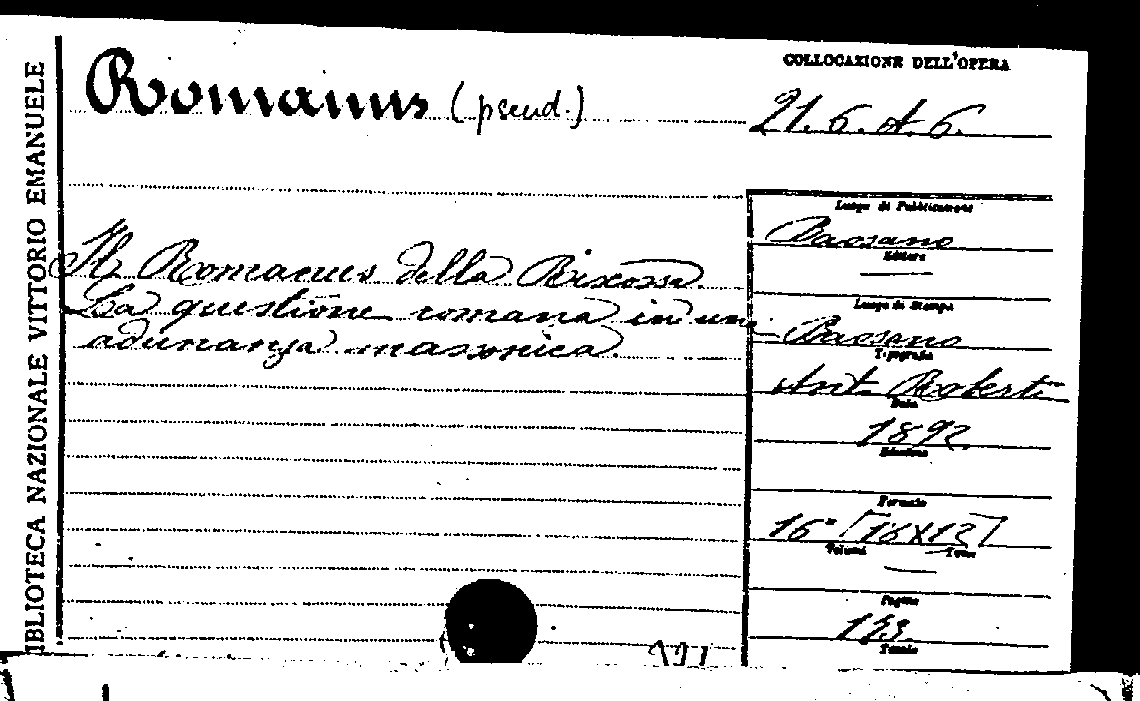 BIBLIOTECA NAZIONALE VITTORIO EMANUELE
Romanus (pseud.)
Il Romanus della
La questione romana in un'
adunanza massonica.
COLLOCAZIONE DELL'OPERA
21. 6. A. 6.
Luogo di Pubblicazione
Bassano
Editore
Luogo di Stampa
Bassano
Tipografia
Ant. Roberti
Data
1892.
Edizione
Formato
16° [16X12]
Volumi Tomo
Pagine
Tavole